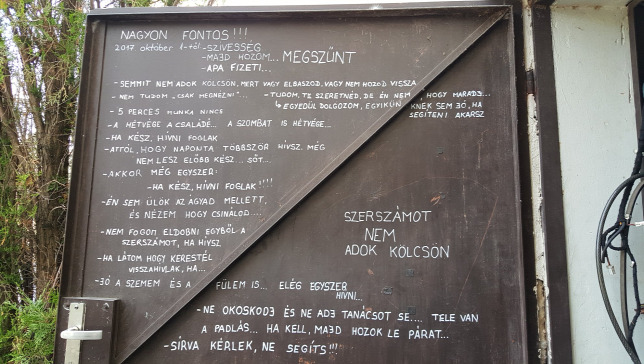 NAGYON FONTOS!!!
2017. október 1-től -SZIVESSÉG
-MAJD HOZOM... MEGSZŰNT
-APA FIZETI...
-SEMMIT NEM ADOK KÖLCSÖN, MERT VAGY ELBASZOD, VAGY NEM HOZOD VISSZA
-NEM TUDOM, CSAK MEGNÉZNI"... -TUDOM, TE SZERETNÉD, DE ÉN NEM, HOGY MARADJ...
↳EGYEDÜL DOLGOZOM, EGYIKÜNKNEK SEM JÓ, HA SEGÍTENI AKARSZ
-5 PERCES MUNKA NINCS
-A HÉTVÉGE A CSALÁDÉ... A SZOMBAT IS HÉTVÉGE...
-HA KÉSZ, HÍVNI FOGLAK
-ATTÓL, HOGY NAPONTA TÖBBSZÖR HÍVSZ, MÉG
NEM LESZ ELŐBB KÉSZ... SŐT...
-AKKOR MÉG EGYSZER:
-HA KÉSZ, HÍVNI FOGLAK!!!!
-ÉN SEM ÜLÖK AZ ÁGYAD MELLETT,
ÉS NÉZEM HOGY CSINÁLOD....
-NEM FOGOM ELDOBNI EGYBŐL A
SZERSZÁMOT, HA HÍVSZ
-HA LÁTOM HOGY KERESTÉL
VISSZAHÍVLAK, HA...
-JÓ A SZEMEM ÉS A FÜLEM IS... ELÉG EGYSZER
HÍVNI...
SZERSZÁMOT
NEM
ADOK KÖLCSÖN
-NE OKOSKODJ ÉS NE ADJ TANÁCSOT SE.... TELE VAN
A PADLÁS... HA KELL, MAJD HOZOK LE PÁRAT...
-SÍRVA KÉRLEK, NE SEGÍTS!!!